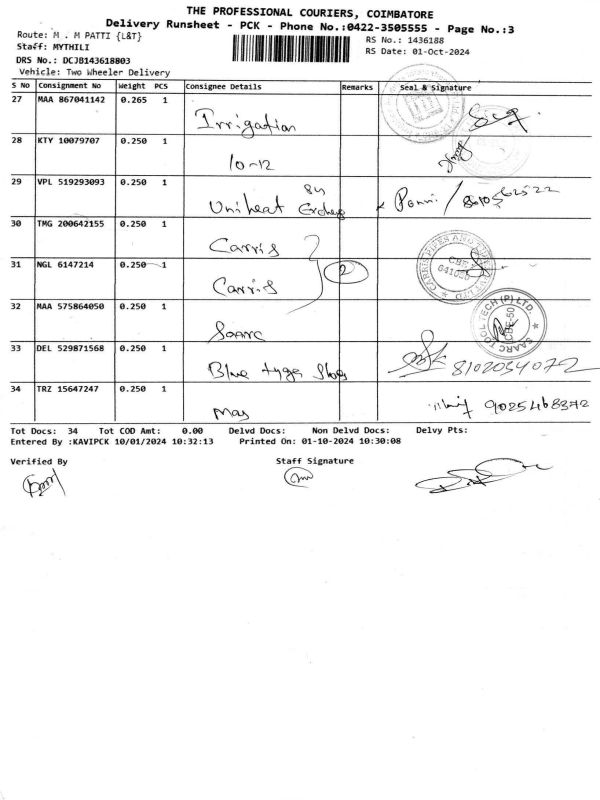 THE PROFESSIONAL COURIERS, COIMBATORE
Delivery Runsheet - PCK - Phone No.:0422-3505555 - Page No.:3
Route: M . M PATTI {L&T}
RS No.: 1436188
Staff: MYTHILI
RS Date: 01-Oct-2024
DRS No.: DCJB143618803
Vehicle: Two Wheeler Delivery
S No Consignment No Weight PCS Consignee Details Remarks Seal & Signature
27 MAA 867041142 0.265 1
Irrigation
28 KTY 10079707 0.250 1
10-12
29 VPL 519293093 0.250 1
Uniheat
Ponni /
30 TMG 200642155 0.250 1
Carris
31 NGL 6147214 0.250 1
Carris
2
CARRIS PIPES AND
CBE
641050
32 MAA 575864050 0.250 1
Saarc
SAARC TOOL TECH (P) LTD.
CBE-50
33 DEL 529871568 0.250 1
Blue
8102054072
34 TRZ 15647247 0.250 1
Mas
9025468372
Tot Docs: 34 Tot COD Amt: 0.00 Delvd Docs: Non Delvd Docs: Delvy Pts:
Entered By :KAVIPCK 10/01/2024 10:32:13 Printed On: 01-10-2024 10:30:08
Verified By Staff Signature